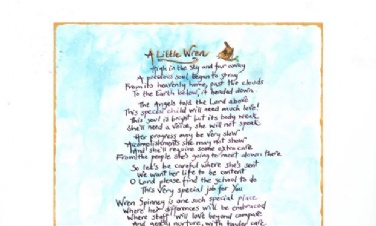 A Little Wren
High in the Sky and far away
A precious soul began to stray
From its heavenly home, past the clouds
To the Earth below, it headed down
The Angels told the Lord above
This special child will need much love!
This soul is bright but its body weak
She'll need a voice, she will not speak
Her progress may be very slow
Accomplishments she may not show
And she'll require some extra care
From the people she's going to meet down there
So let's be careful where she's sent
We want her life to be content
O Lord please find the school to do
This very special job for You
Wren Spinney is one such special place
Where her differences will be embraced
Where staff will love beyond compare
And gently nurture, with tender care